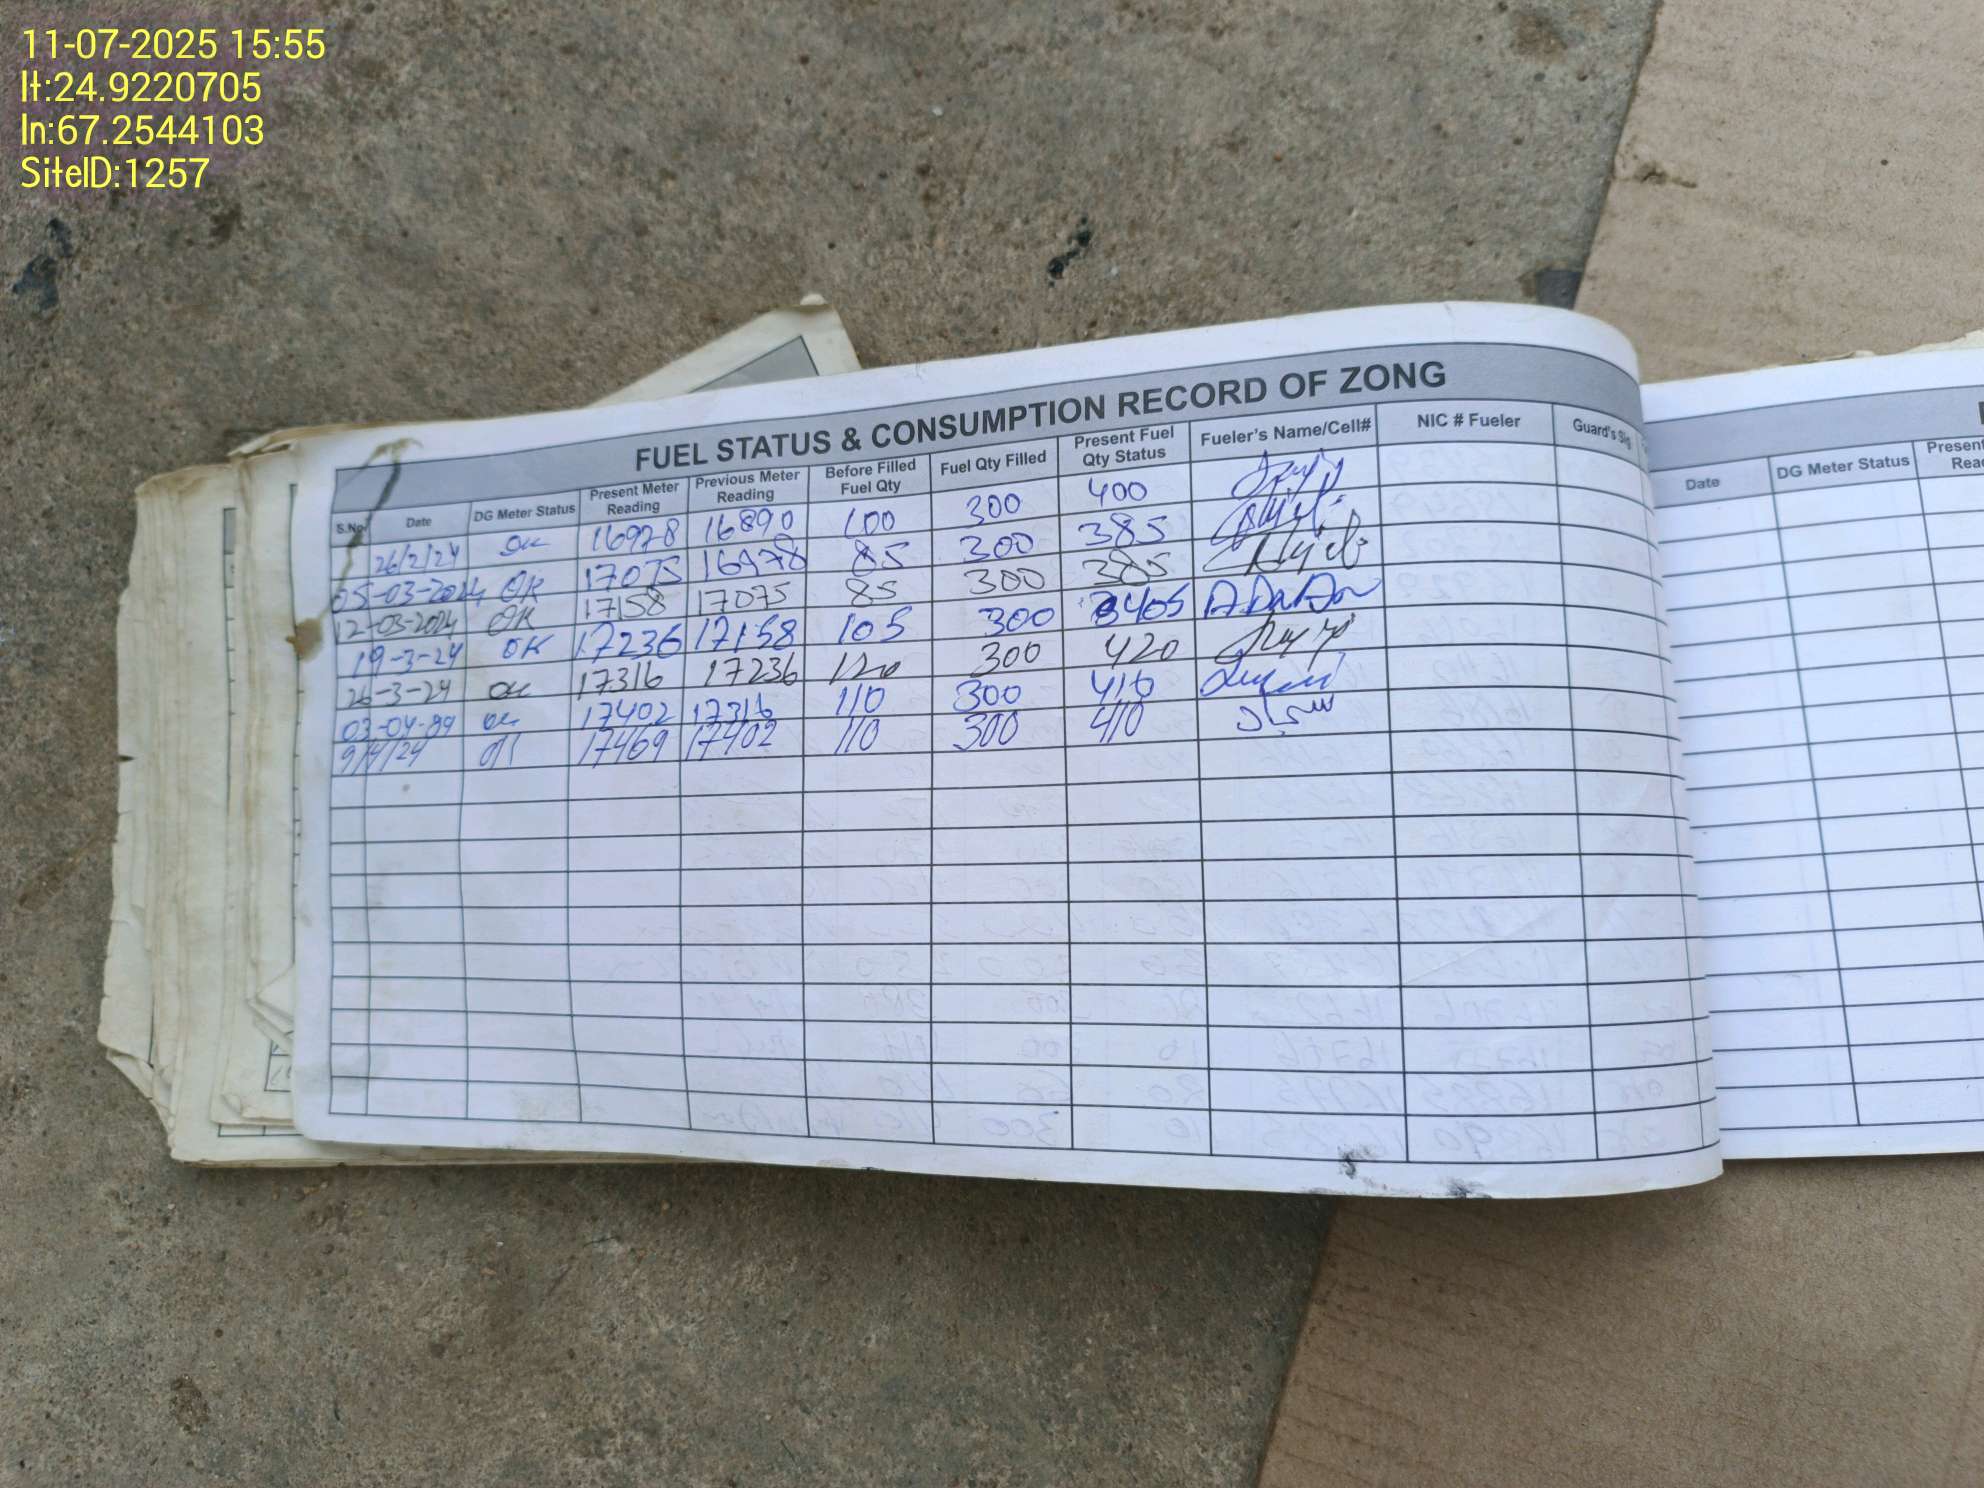 11-07-2025 15:55
lt:24.9220705
ln:67.2544103
SiteID:1257
FUEL STATUS & CONSUMPTION RECORD OF ZONG
S.No. Date DG Meter Status Present Meter Reading Previous Meter Reading Before Filled Fuel Qty Fuel Qty Filled Present Fuel Qty Status Fueler's Name/Cell# NIC # Fueler Guard's Sig
26/2/24 OK 16978 16890 100 300 400
05-03-2024 OK 17075 16978 85 300 385
12-03-2024 OK 17158 17075 85 300 385
19-3-24 OK 17236 17158 105 300 405
26-3-24 OK 17316 17236 120 300 420
03-04- OK 17402 17316 110 300 410
9/4/24 OK 17469 17402 110 300 410
Date DG Meter Status Present